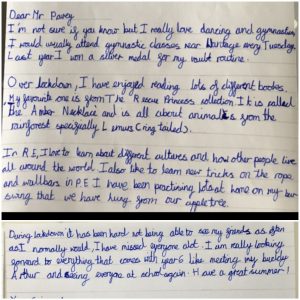 Dear Mr Pavey
I'm not sure if you know but I really love dancing and gymnastics
I would usually attend gymnastic classes near Wantage every Tuesday.
Last year I won a silver medal for my vault routine.
Over lockdown, I have enjoyed reading lots of different books.
My favourite one is from The "Rescue Princess collection It is called
the Amber Necklace and is all about animals from the
rainforest specifically Lemurs (ring tailed).
In R.E, I love to learn about different cultures and how other people live
all around the world. I also like to learn new tricks on the rope,
and wallbars in P.E I have been practising lots at home on my
swing that we have hung from our apple tree.
During lockdown it has been hard not being able to see my friends as often
as I normally would, I have missed everyone alot. I am really looking
forward to everything that comes with year 6 like meeting my buddy
Arthur and seeing everyone at school again. Have a great summer!